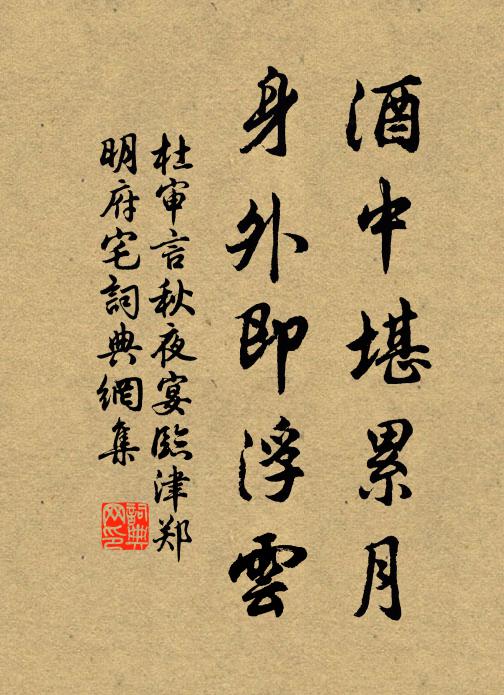 酒中堪累月
身外即浮雲
杜审言秋夜宴臨津郑
明府宅詞典網集
詞典
网印